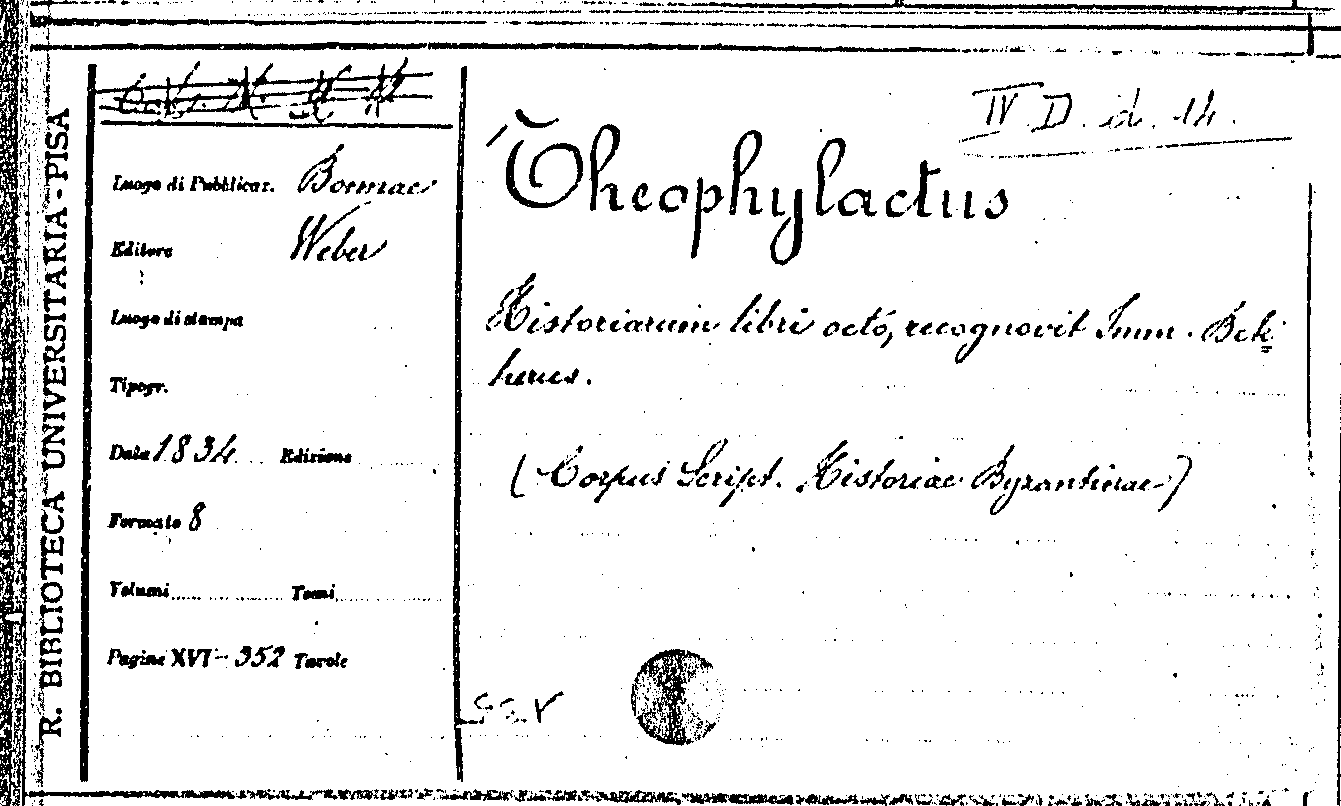 R. BIBLIOTECA UNIVERSITARIA - PISA
IV D. d. 14.
Luogo di Pubblicaz. Bonnae
Editore Weber
Luogo di stampa
Tipogr.
Data 1834 Edizione
Formato 8
Volumi Tomi
Pagine XVI - 352 Tavole
Theophylactus
Historiarum libri octo, recognovit Imm. Bek
kerus.
(Corpus Script. Historiae Byzantinae)